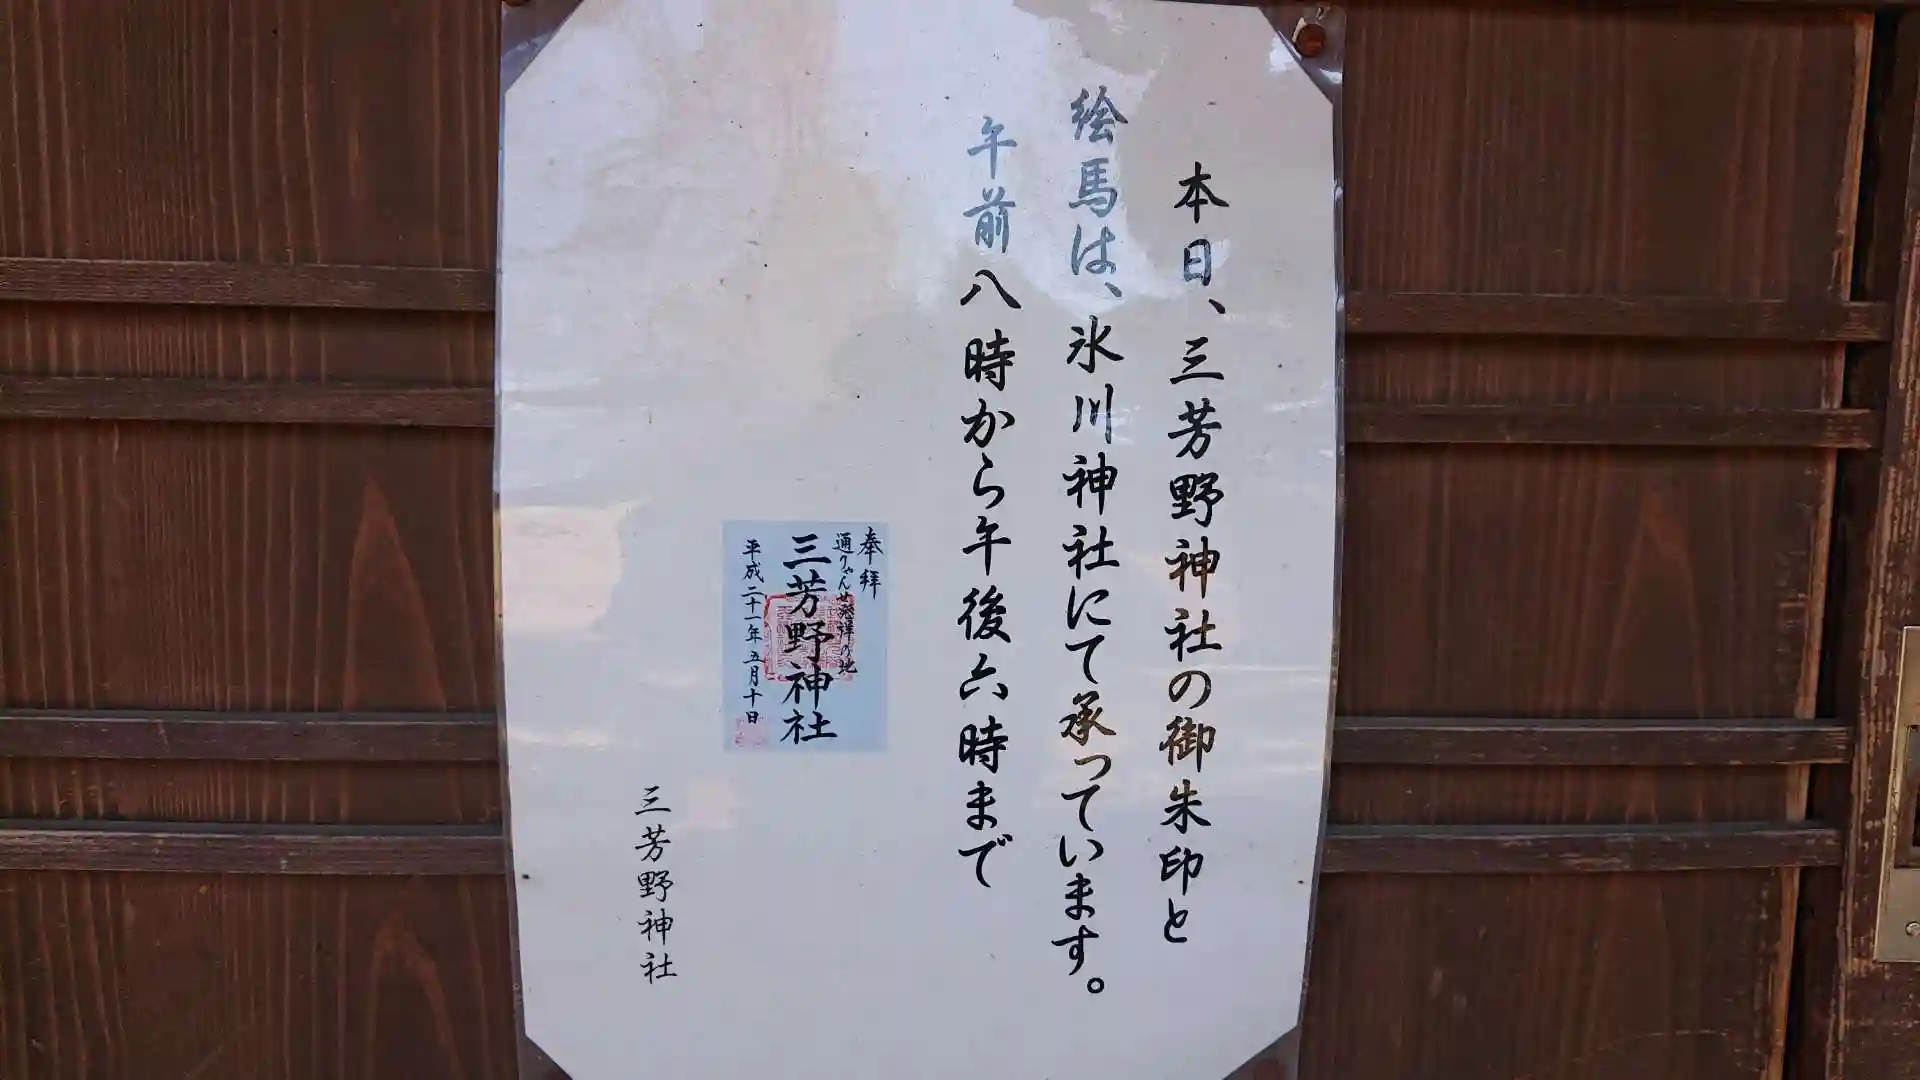 本日、三芳野神社の御朱印と
絵馬は、氷川神社にて承っています。
午前八時から午後六時まで
奉拝
通りゃんせ発祥の地
三芳野神社
平成二十一年五月十日
三芳野神社